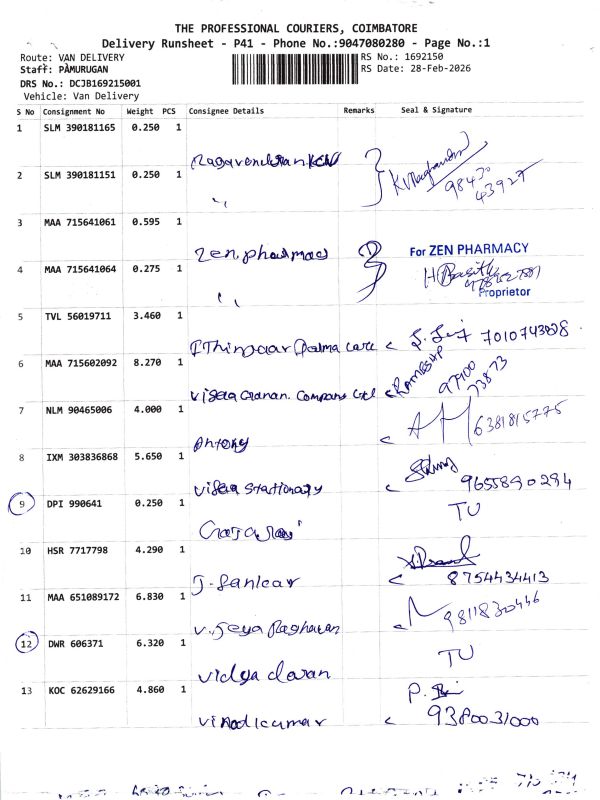 THE PROFESSIONAL COURIERS, COIMBATORE
Delivery Runsheet - P41 - Phone No.:9047080280 - Page No.:1
Route: VAN DELIVERY
RS No.: 1692150
Staff: PAMURUGAN
RS Date: 28-Feb-2026
DRS No.: DCJB169215001
Vehicle: Van Delivery
S No Consignment No Weight PCS Consignee Details Remarks Seal & Signature
1 SLM 390181165 0.250 1
2 SLM 390181151 0.250 1
98430
43927
3 MAA 715641061 0.595 1 Zen pharmacy
For ZEN PHARMACY
4 MAA 715641064 0.275 1
Proprietor
5 TVL 56019711 3.460 1 care
6 MAA 715602092 8.270 1 Company
97900
73873
7 NLM 90465006 4.000 1 Antony 6381815775
8 IXM 303836868 5.650 1 stationary 9655890284
9 DPI 990641 0.250 1 TU
10 HSR 7717798 4.290 1 J. Sankar 8754434413
11 MAA 651089172 6.830 1 V. Jeya Raghavan 9811830446
12 DWR 606371 6.320 1 TU
13 KOC 62629166 4.860 1 Vinodkumar 9380031000